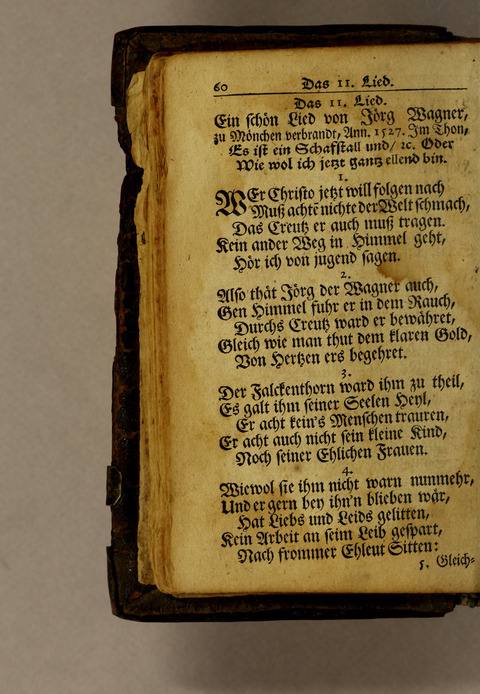 60 Das 11. Lied.
Das 11. Lied.
Ein schön Lied von Jörg Wagner,
zu Mönchen verbrandt, Ann. 1527. Im Thon,
Es ist ein Schafstall und/ ꝛc. Oder
Wie wol ich jetzt gantz ellend bin.
1.
WEr Christo jetzt will folgen nach
Muß achtē nichte der Welt schmach,
Das Creutz er auch muß tragen.
Kein ander Weg in Himmel geht,
Hör ich von jugend sagen.
2.
Also thåt Jörg der Wagner auch,
Gen Himmel fuhr er in dem Rauch,
Durchs Creutz ward er bewåhret,
Gleich wie man thut dem klaren Gold,
Von Hertzen ers begehret.
3.
Der Falckenthorn ward ihm zu theil,
Es galt ihm seiner Seelen Heyl,
Er acht kein's Menschen trauren,
Er acht auch nicht sein kleine Kind,
Noch seiner Ehlichen Frauen.
4.
Wiewol sie ihm nicht warn nunmehr,
Und er gern bey ihn'n blieben wår,
Hat Liebs und Leids gelitten,
Kein Arbeit an seim Leib gespart,
Nach frommer Ehleut Sitten:
5. Gleich-